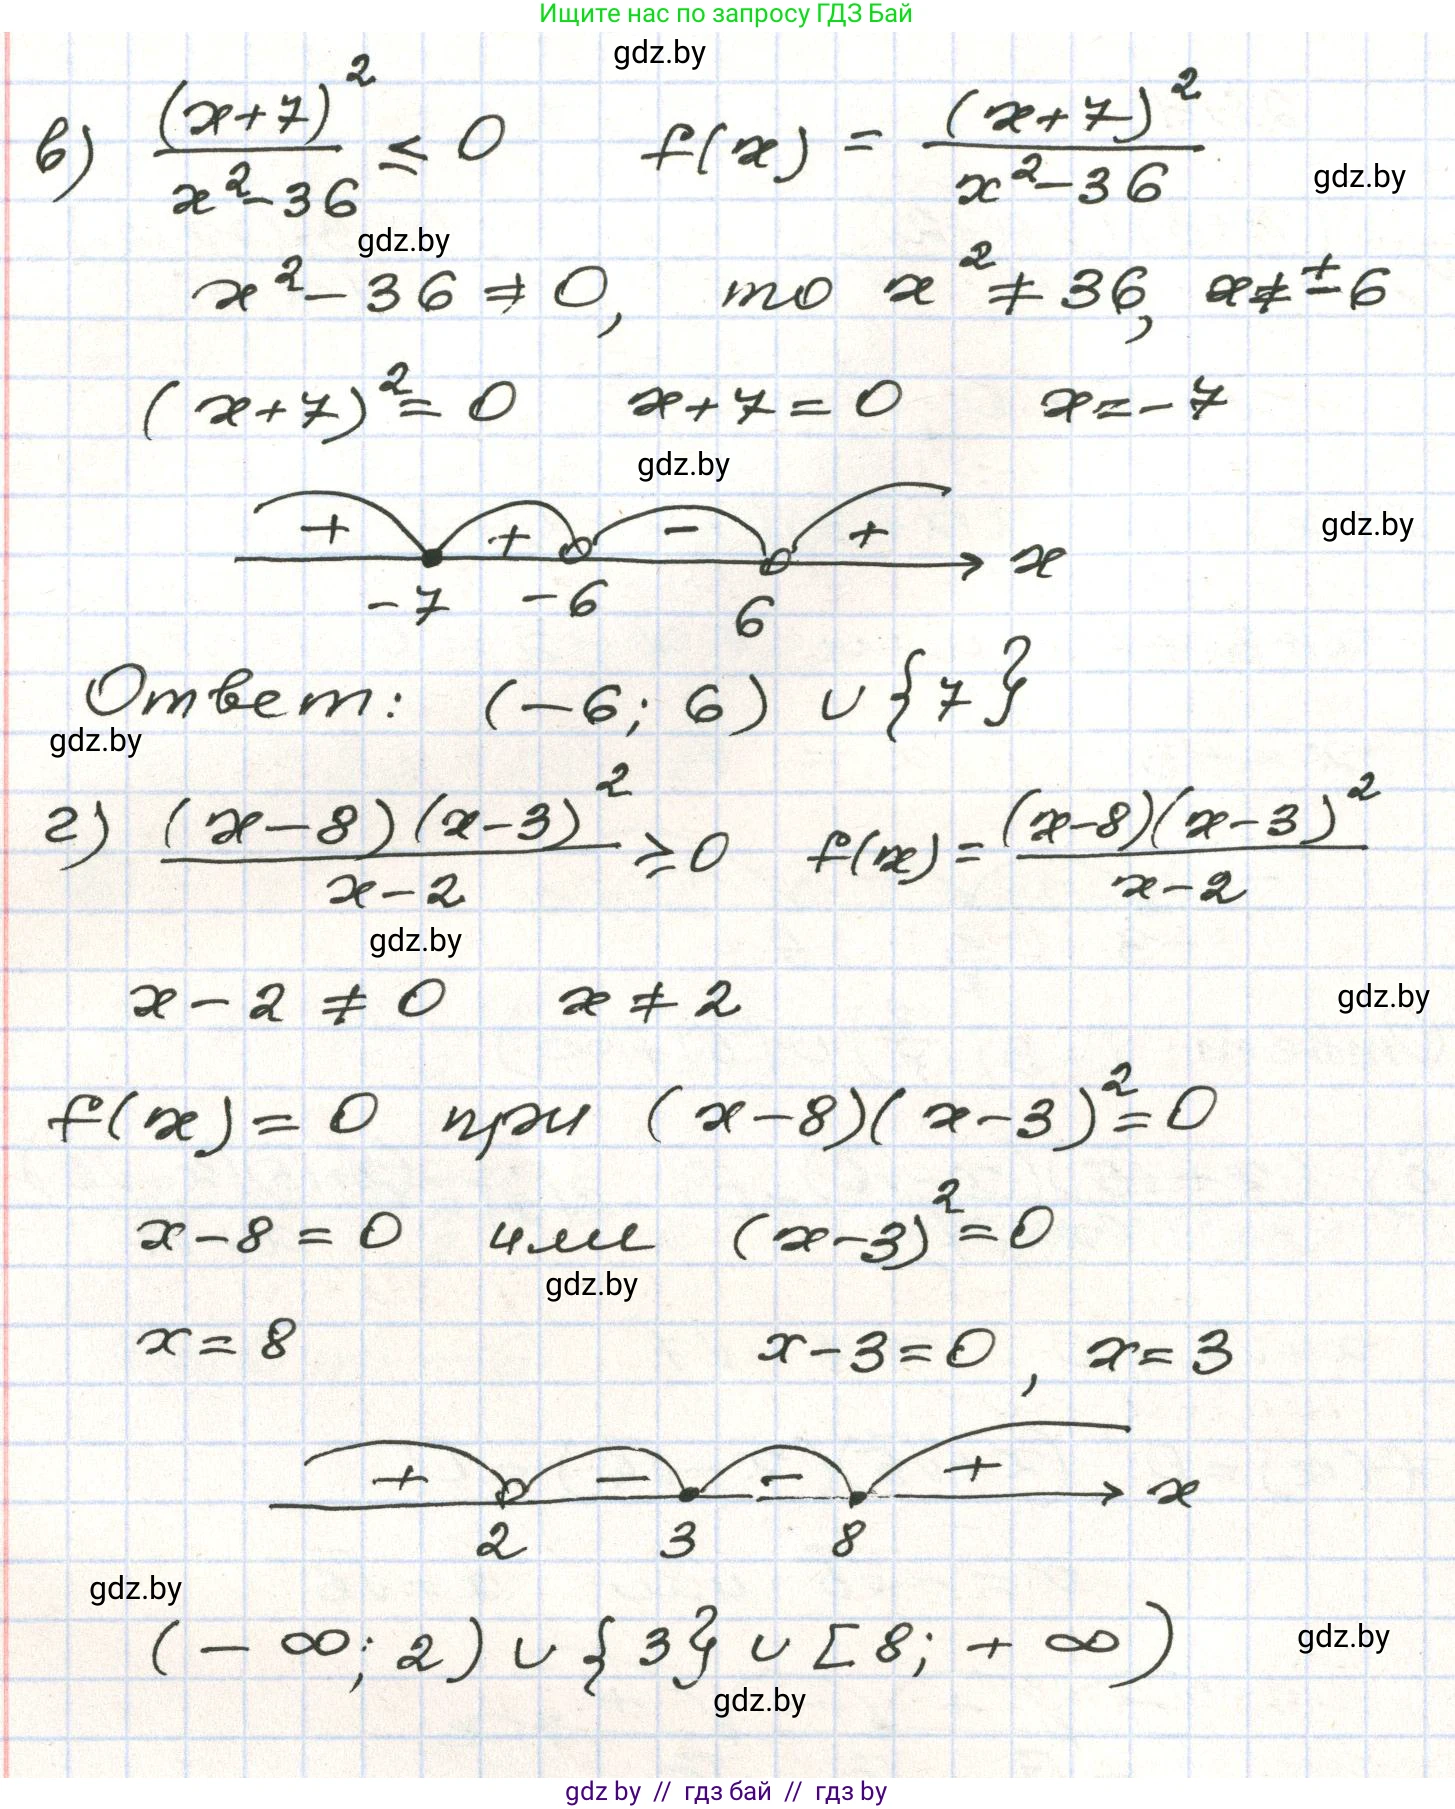 Ищите нас по запросу ГДЗ Бай
gdz.by
в) (x+7)²/(x²-36) ≤ 0 f(x) = (x+7)²/(x²-36)
gdz.by
gdz.by
x²-36≠0, то x²≠36, x≠±6
(x+7)²=0 x+7=0 x=-7
gdz.by
+ + - + x
gdz.by
-7 -6 6
Ответ: (-6; 6) ∪ {7}
gdz.by
г) (x-8)(x-3)²/(x-2) ≥ 0 f(x) = (x-8)(x-3)²/(x-2)
gdz.by
x-2≠0 x≠2
gdz.by
f(x)=0 при (x-8)(x-3)²=0
x-8=0 или (x-3)²=0
gdz.by
x=8 x-3=0, x=3
+ - - + x
2 3 8
gdz.by
(-∞; 2) ∪ {3} ∪ [8; +∞)
gdz.by
gdz.by
gdz by // гдз бай // гдз by